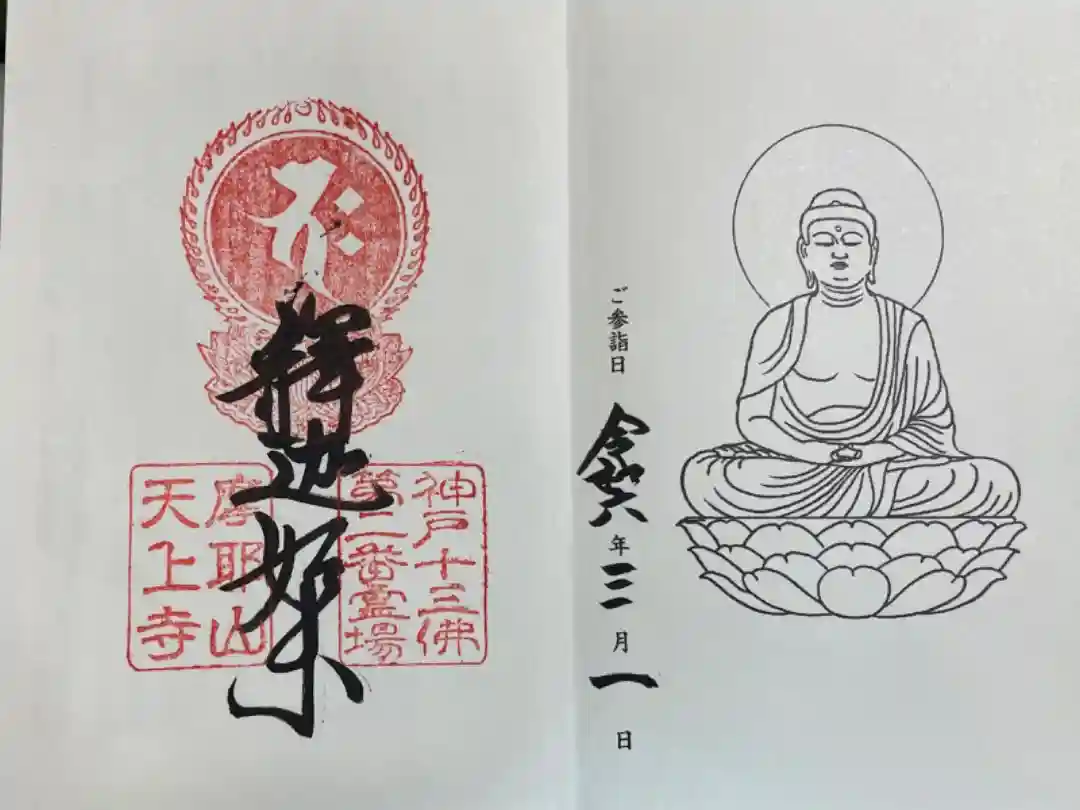 ご参詣日 令和六年三月一日
神戸十三佛
第二番霊場
釋迦如来
摩耶山
天上寺